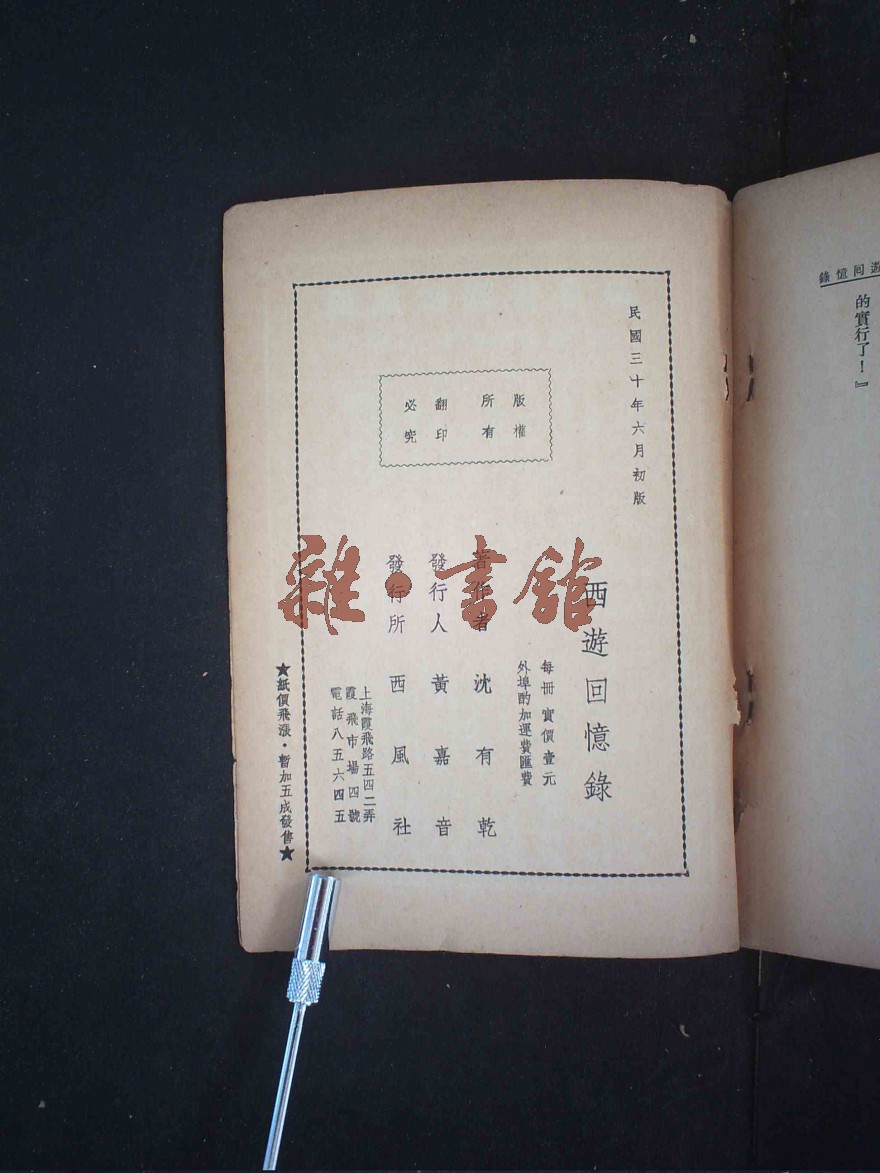 遊回憶錄
的實行了！』
民國三十年六月初版
版權
所有
翻印
必究
西遊回憶錄
每冊實價壹元
外埠酌加運費匯費
著作者 沈有乾
發行人 黃嘉音
發行所 西風社
上海霞飛路五四二弄
霞飛市場四號
電話八五六四五
★紙價飛漲・暫加五成發售★
雜・書館